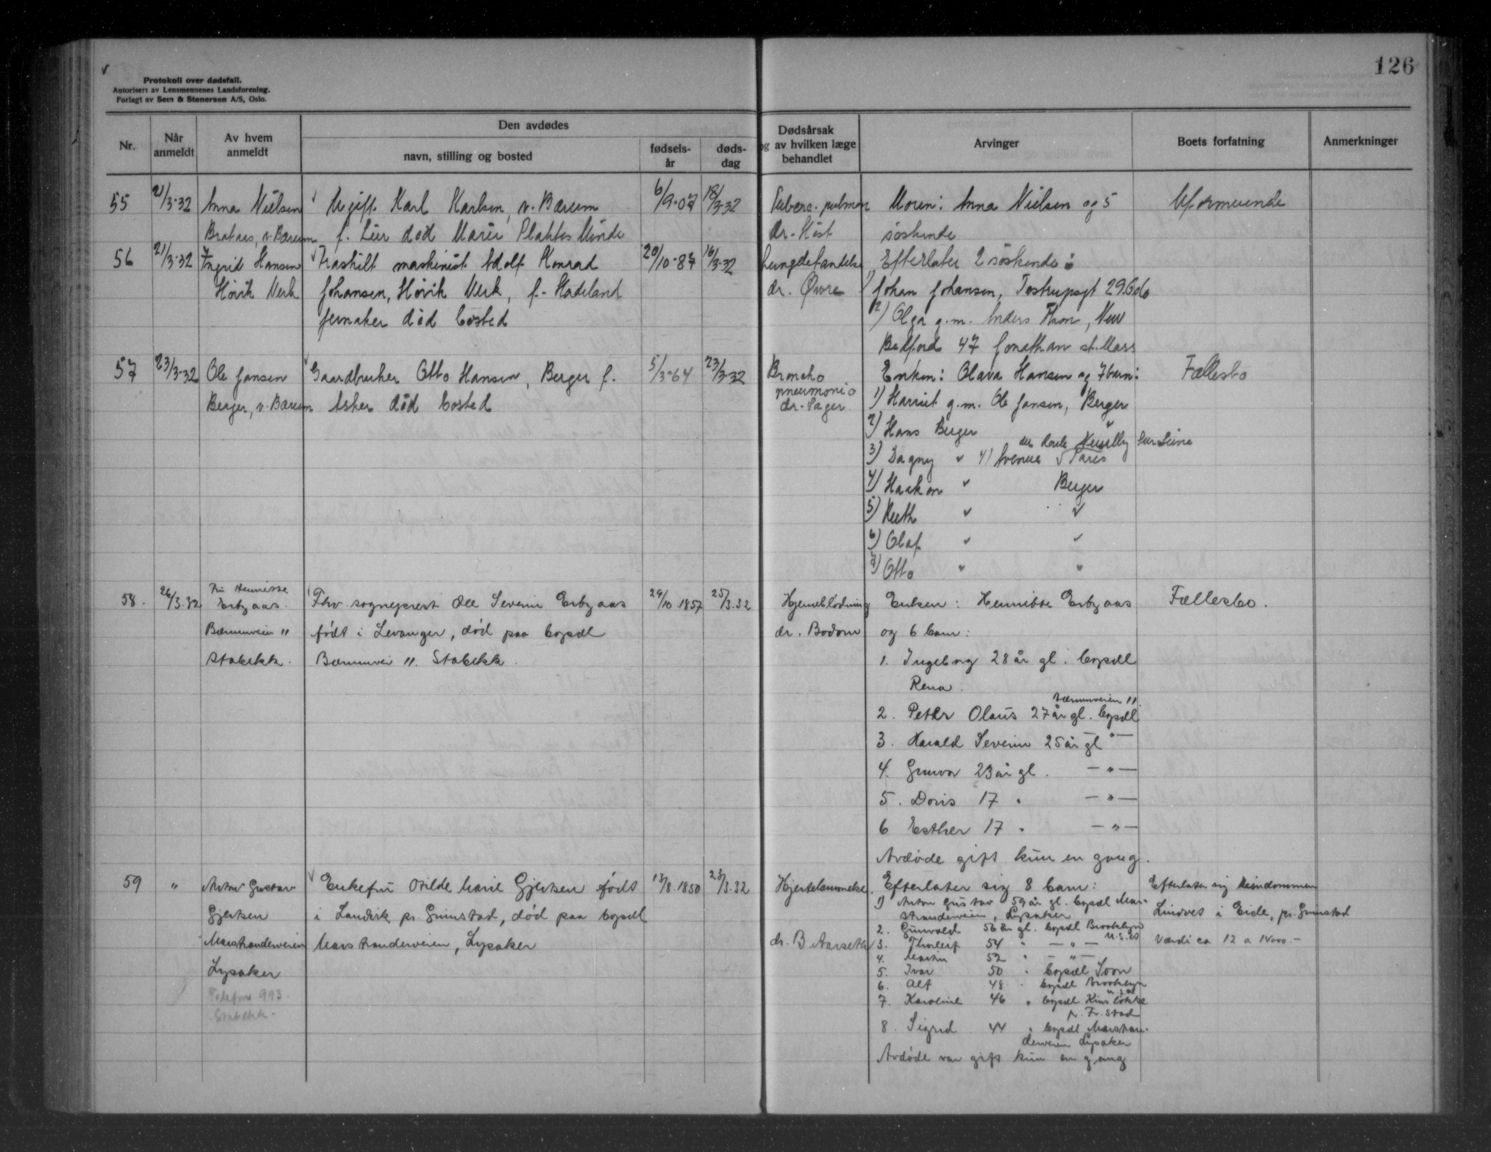 126
Protokoll over dødsfall.
Autorisert av Lensmennenes Landsforening.
Forlagt av Sem & Stenersen A/S, Oslo.
Nr.
Når anmeldt
Av hvem anmeldt
Den avdødes
navn, stilling og bosted
fødsels-år
døds-dag
Dødsårsak og av hvilken læge behandlet
Arvinger
Boets forfatning
Anmerkninger
55 21/3-32 Anna Nielsen Ugift Karl Karlsen, v. Bærum 6/9-07 18/3-32 Moren: Anna Nielsen og 5 Uformuende
v. Bærum f. Lier død søskende
56 21/3-32 Ingrid Hansen Fraskilt maskinist Adolf Konrad 20/10-87 16/3-32 Lungebetændelse Efterlater 2 søskende:
Høvik Verk Johansen, Høvik Verk, f. Hadeland dr. Øvre 1) Johan Johansen, Tostrupsgt 29
Jevnaker død bosted 2) Olga g.m. Anders New
Bedford 47 Jonathan st. Mass
57 23/3-32 Ole Jansen Gaardbruker Otto Hansen, Berger f. 5/3-64 23/3-32 Broncho Enken: Olava Hansen og 7 barn: Fællesbo
Berger, v. Bærum Asker død bosted pneumonio 1) Harriet g.m. Ole Jansen, Berger
dr. Sager 2) Hans Berger "
3) Dagny " 41 Avenue Neuilly sur Seine Paris
4) Haakon " Berger
5) Ruth " "
6) Olaf " "
7) Otto " "
58. 26/3.32 Fru Henriette Erbzaas. Fhv. sogneprest Ole Severin Erbzaas 29/10 1857 25/3.32 Hjerneblødning Enken: Henriette Erbzaas Fællesbo.
Bærumveien 11 født i Levanger, død paa bopæl dr. Bodom og 6 barn:
Stabekk. Bærumvei 11. Stabekk. 1. Ingeborg 28 år gl. bopæl
Rena.
Bærumveien 11.
2. Petter Olaus 27 år gl. bopæl
3. Harald Severin 25 år gl — " —
4. Gunvor 23 år gl. — " —
5. Doris 17 " — " —
6 Esther 17 " — " —
Avdøde gift kun en gang.
59 " Anton Gustav Enkefru Marie Gjertsen født 13/8.1850 23/3.32 Hjertelammelse. Efterlater sig 8 barn: Efterlater sig eiendommen
Gjertsen i Landvik pr. Grimstad, død paa bopæl 1) Anton Gustav 59 år gl. bopæl Mar-
stranderveien, Lysaker Lindves i Eide, pr. Grimstad
Marstranderveien Marstranderveien, Lysaker dr. B Aarseth 2. Gunvald 56 år gl. bopæl Brooklyn U.S.A
3. Thorleif 54 " — " — Værdi ca 12 a 14000.-
4. 52 " — " —
Lysaker 5. Ivar 50 " bopæl Soon
6. Alf 48 " bopæl Brooklyn U.S.A
Telefon 993. 7. Karoline 46 " bopæl
Stabekk. p. Fr.stad
8. Sigrid 44 " bopæl Marstran-
derveien Lysaker
Avdøde var gift kun en gang